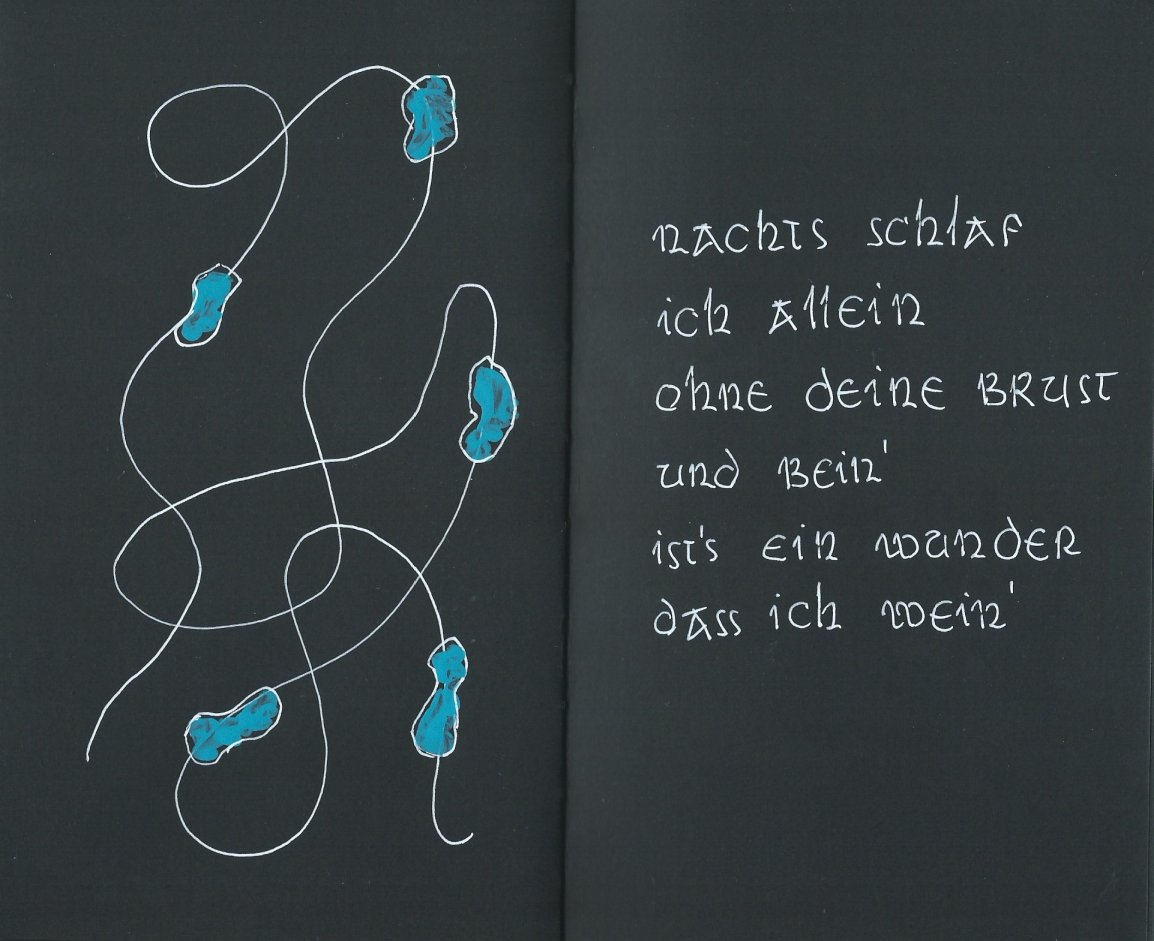 nachts schlaf
ich allein
ohne deine Brust
und Bein'
ist's ein wunder
dass ich wein'